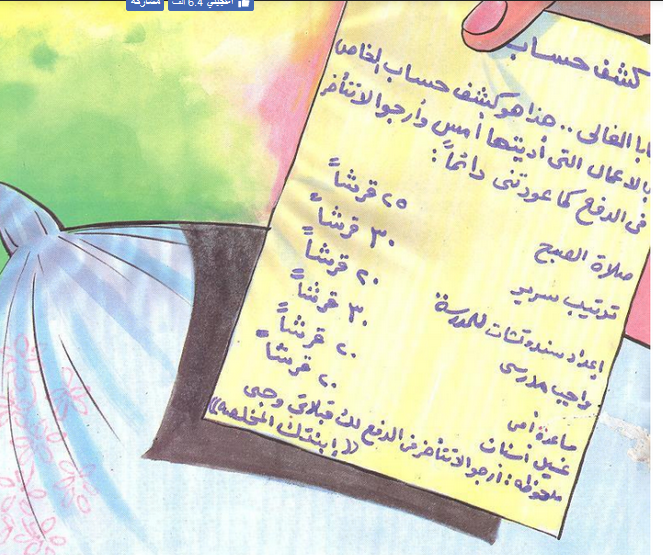 أعجبني 6.4 ألف
مشاركة
كشف حساب
بابا الغالى .. هذا هو كشف حساب الخاص
بالاعمال التى أديتها أمس وأرجو ألا تتأخر
فى الدفع كما عودتنى دائماً :
صلاة الصبح ٢٥ قرشاً
ترتيب سرير ٣٠ قرشاً
إعداد سندوتشات للمدرسة ٢٠ قرشاً
واجب مدرسى ٣٠ قرشاً
مساعدة أمى ٢٠ قرشاً
غسيل أسنان ٢٠ قرشاً
ملحوظة : أرجو ألا تتأخر فى الدفع لك قبلاتى وحبى
« إبنتك المخلصة »